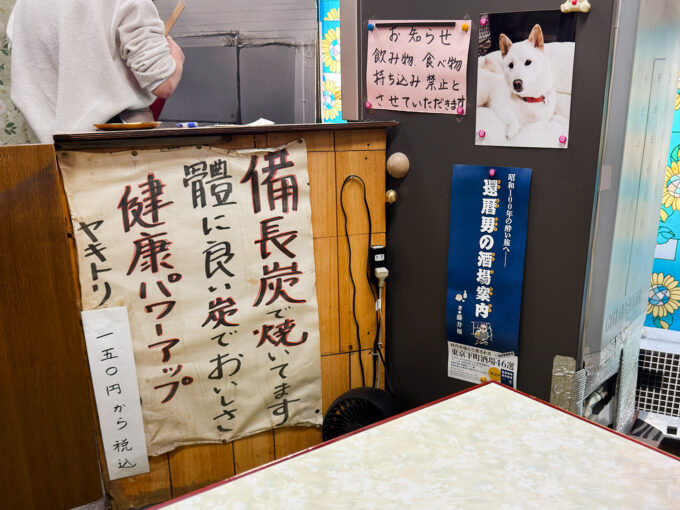 お知らせ
飲み物、食べ物
持ち込み禁止と
させていただきます
備長炭で焼いてます
體に良い炭でおいしさ
健康パワーアップ
ヤキトリ
一五〇円から税込
昭和100年の酔い旅へ──
還暦男の酒場案内
東京下町酒場46選